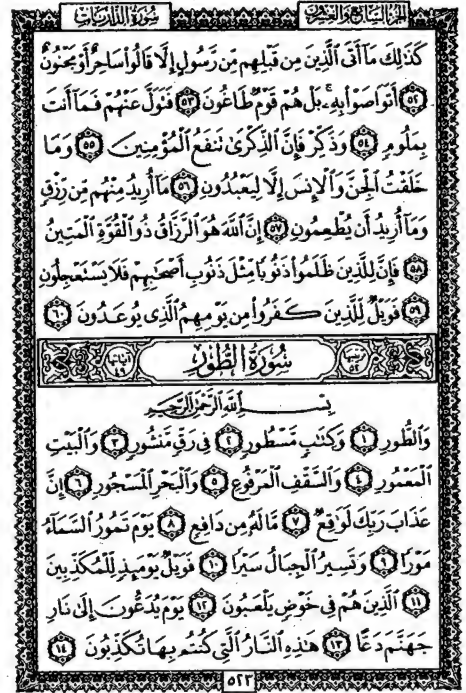 الجزء السابع والعشرون سورة الذاريات
كَذَٰلِكَ مَآ أَتَى ٱلَّذِينَ مِن قَبۡلِهِم مِّن رَّسُولٍ إِلَّا قَالُواْ سَاحِرٌ أَوۡ مَجۡنُونٌ
٥٢ أَتَوَاصَوۡاْ بِهِۦۚ بَلۡ هُمۡ قَوۡمٞ طَاغُونَ ٥٣ فَتَوَلَّ عَنۡهُمۡ فَمَآ أَنتَ
بِمَلُومٖ ٥٤ وَذَكِّرۡ فَإِنَّ ٱلذِّكۡرَىٰ تَنفَعُ ٱلۡمُؤۡمِنِينَ ٥٥ وَمَا
خَلَقۡتُ ٱلۡجِنَّ وَٱلۡإِنسَ إِلَّا لِيَعۡبُدُونِ ٥٦ مَآ أُرِيدُ مِنۡهُم مِّن رِّزۡقٖ
وَمَآ أُرِيدُ أَن يُطۡعِمُونِ ٥٧ إِنَّ ٱللَّهَ هُوَ ٱلرَّزَّاقُ ذُو ٱلۡقُوَّةِ ٱلۡمَتِينُ
٥٨ فَإِنَّ لِلَّذِينَ ظَلَمُواْ ذَنُوبٗا مِّثۡلَ ذَنُوبِ أَصۡحَٰبِهِمۡ فَلَا يَسۡتَعۡجِلُونِ
٥٩ فَوَيۡلٞ لِّلَّذِينَ كَفَرُواْ مِن يَوۡمِهِمُ ٱلَّذِي يُوعَدُونَ ٦٠
ترتيبها ٥٢ سُورَةُ الطُّورِ آياتها ٤٩
بِسۡمِ ٱللَّهِ ٱلرَّحۡمَٰنِ ٱلرَّحِيمِ
وَٱلطُّورِ ١ وَكِتَٰبٖ مَّسۡطُورٖ ٢ فِي رَقّٖ مَّنشُورٖ ٣ وَٱلۡبَيۡتِ
ٱلۡمَعۡمُورِ ٤ وَٱلسَّقۡفِ ٱلۡمَرۡفُوعِ ٥ وَٱلۡبَحۡرِ ٱلۡمَسۡجُورِ ٦ إِنَّ
عَذَابَ رَبِّكَ لَوَٰقِعٞ ٧ مَّا لَهُۥ مِن دَافِعٖ ٨ يَوۡمَ تَمُورُ ٱلسَّمَآءُ
مَوۡرٗا ٩ وَتَسِيرُ ٱلۡجِبَالُ سَيۡرٗا ١٠ فَوَيۡلٞ يَوۡمَئِذٖ لِّلۡمُكَذِّبِينَ
١١ ٱلَّذِينَ هُمۡ فِي خَوۡضٖ يَلۡعَبُونَ ١٢ يَوۡمَ يُدَعُّونَ إِلَىٰ نَارِ
جَهَنَّمَ دَعًّا ١٣ هَٰذِهِ ٱلنَّارُ ٱلَّتِي كُنتُم بِهَا تُكَذِّبُونَ ١٤
٥٢٣